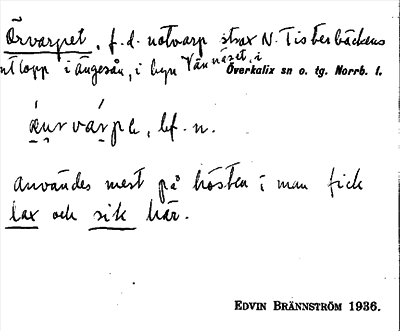 Örvarpet, f.d. notvarp strax N. Tisterbäckens
utlopp i Ängesån, i byn Vännäset, i Överkalix sn o. tg. Norrb. l.
ǽnrvárpe, bf. n.
användes mest på hösten; man fick
lax och sik här.
EDVIN BRÄNNSTRÖM 1936.